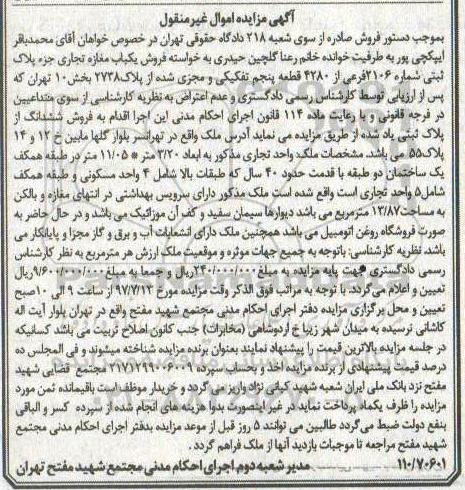 آگهی مزایده اموال غیرمنقول
بموجب دستور فروش صادره از سوی شعبه ۲۱۸ دادگاه حقوقی تهران در خصوص خواهان آقای محمدباقر
ایپکچی پور به طرفیت خوانده خانم رعنا گلچین حیدری به خواسته فروش یکباب مغازه تجاری جزء پلاک
ثبتی شماره ۲۱۰۶فرعی از ۴۲۸۰ قطعه پنجم تفکیکی و مجزی شده از پلاک۲۷۳۸ بخش۱۰ تهران که
پس از ارزیابی توسط کارشناس رسمی دادگستری و عدم اعتراض به نظریه کارشناسی از سوی متداعیین
در فرجه قانونی و با رعایت ماده ۱۱۴ قانون اجرای احکام مدنی این اجرا اقدام به فروش ششدانگ از
پلاک ثبتی یاد شده از طریق مزایده می نماید آدرس ملک واقع در تهرانسر بلوار گلها مابین خ ۱۲ و ۱۴
پلاک۵۵ می باشد. مشخصات ملک، واحد تجاری مذکور به ابعاد ۳/۲۰ متر * ۱۱/۰۵ متر در طبقه همکف
یک ساختمان دو طبقه با قدمت حدود ۴۰ سال که طبقات بالا شامل ۴ واحد مسکونی و طبقه همکف
شامل۵ واحد تجاری است واقع شده است ملک مذکور دارای سرویس بهداشتی در انتهای مغازه و بالکن
به مساحت۱۳/۸۷ مترمربع می باشد دیوارها سیمان سفید و کف آن موزائیک می باشد و در حال حاضر به
صورت فروشگاه روغن اتومبیل می باشد همچنین ملک دارای انشعابات آب و برق و گاز مجزا و پایانکار می
باشد. نظریه کارشناسی: باتوجه به جمیع جهات موثره و موقعیت ملک ارزش هر مترمربع به نظر کارشناس
رسمی دادگستری جهت پایه مزایده به مبلغ۲۴۰/۰۰۰/۰۰۰ریال و جمعا به مبلغ۹/۶۰۰/۰۰۰/۰۰۰ریال
تعیین و اعلام می گردد. با توجه به مراتب فوق الذکر وقت مزایده مورخ ۹۷/۷/۱۲ از ساعت ۹ الی ۱۰صبح
تعیین و محل برگزاری مزایده دفتر اجرای احکام مدنی مجتمع شهید مفتح واقع در تهران بلوار آیت اله
کاشانی نرسیده به میدان شهر زیبا خ اردوشاهی (مخابرات) جنب کانون اصلاح تربیت می باشد کسانیکه
در جلسه مزایده بالاترین قیمت را پیشنهاد نمایند بعنوان برنده مزایده شناخته میشوند و فی المجلس ده
درصد قیمت پیشنهادی از برنده مزایده اخذ و بحساب سپرده ۲۱۷۱۲۹۹۰۰۶۰۰۹ مجتمع قضایی شهید
مفتح نزد بانک ملی ایران شعبه شهید کیفی نژاد واریز می گردد و خریدار موظف است باقیمانده ثمن مورد
مزایده را ظرف یکماه پرداخت نماید در غیر اینصورت بدوا هزینه های انجام شده از سپرده کسر و الباقی
بنفع دولت ضبط می گردد طالبین می توانند ۵ روز قبل از موعد مزایده بدفتر اجرای احکام مدنی مجتمع
شهید مفتح مراجعه تا موجبات بازدید آنها از ملک فراهم گردد.
۱۱۰/۷۰۶۰۱ مدیر شعبه دوم اجرای احکام مدنی مجتمع شهید مفتح تهران